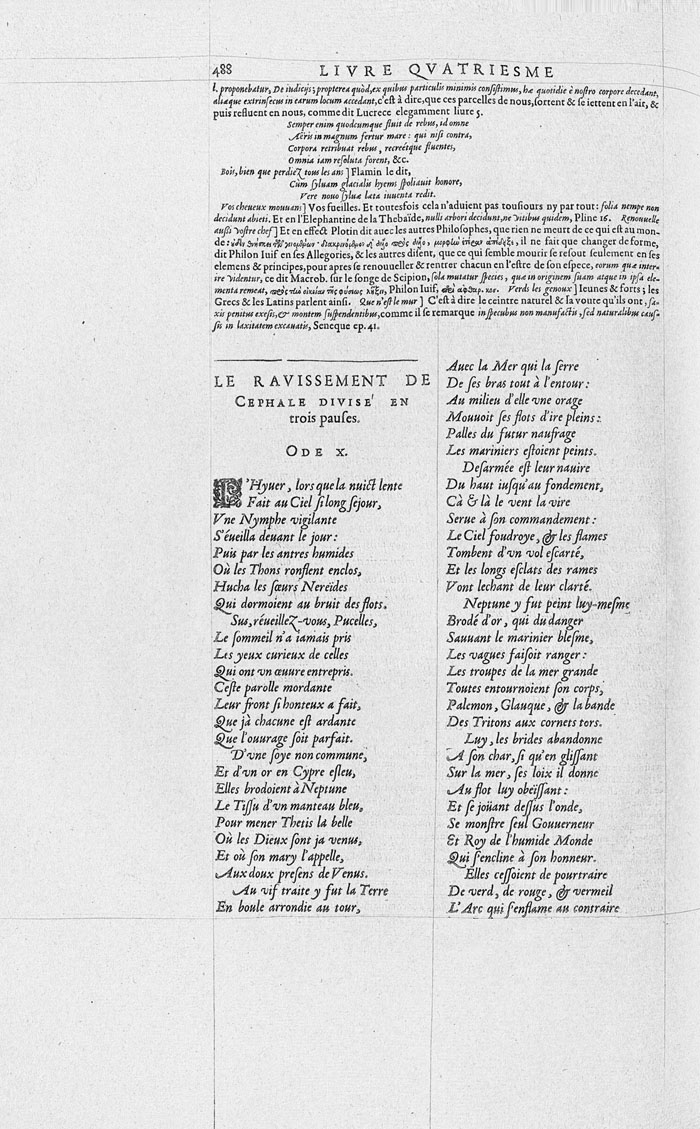 488 LIVRE QVATRIESME
l. proponebatur, De iudicijs; propterea quòd, ex quibus particulis minimis consistimus, hæ quotidie è nostro corpore decedant,
aliæque extrinsecus in earum locum accedant, c'est à dire, que ces parcelles de nous, sortent & se iettent en l'air, &
puis refluent en nous, comme dit Lucrece elegamment liure 5.
Semper enim quodcumque fluit de rebus, id omne
Aëris in magnum fertur mare: qui nisi contra,
Corpora retribuat rebus, recreétque fluentes,
Omnia iam resoluta forent, &c.
Bois, bien que perdiez tous les ans] Flamin le dit,
Cùm syluam glacialis hyems spoliauit honore,
Vere nouo syluæ lata iuuenta redit.
Vos cheueux mouuans] Vos fueilles. Et toutesfois cela n'aduient pas tousiours ny par tout: folia nempe non
decidunt abieti. Et en l'Elephantine de la Thebaïde, nulli arbori decidunt, ne vitibus quidem, Pline 16. Renouuelle
aussi vostre chef] Et en effect Plotin dit auec les autres Philosophes, que rien ne meurt de ce qui est au mon-
de: il ne fait que changer de forme,
dit Philon Iuif en ses Allegories, & les autres disent, que ce qui semble mourir se resout seulement en ses
elemens & principes, pour apres se renouueller & rentrer chacun en l'estre de son espece, eorum quæ inter-
ire videntur, ce dit Macrob. sur le songe de Scipion, sola mutatur species, quæ in originem suam atque in ipsa ele-
menta remeat, Philon Iuif, Verds les genoux] Ieunes & forts; les
Grecs & les Latins parlent ainsi. Que n'est le mur] C'est à dire le ceintre naturel & la voute qu'ils ont, sa-
xis penitus exesis, & montem suspendentibus, comme il se remarque in specubus non manufactis, sed naturalibus caus-
sis in laxitatem excauatis, Seneque ep. 41.
LE RAVISSEMENT DE
CEPHALE DIVISE' EN
trois pauses.
ODE X.
L'Hyuer, lors que la nuict lente
Fait au Ciel si long sejour,
Vne Nymphe vigilante
S'éueilla deuant le jour:
Puis par les antres humides
Où les Thons ronflent enclos,
Hucha les sœurs Nereïdes
Qui dormoient au bruit des flots.
Sus, réueillez-vous, Pucelles,
Le sommeil n'a iamais pris
Les yeux curieux de celles
Qui ont vn œuure entrepris.
Ceste parolle mordante
Leur front si honteux a fait,
Que jà chacune est ardante
Que l'ouurage soit parfait.
D'vne soye non commune,
Et d'vn or en Cypre esleu,
Elles brodoient à Neptune
Le Tissu d'vn manteau bleu,
Pour mener Thetis la belle
Où les Dieux sont ja venus,
Et où son mary l'appelle,
Aux doux presens de Venus.
Au vif traite y fut la Terre
En boule arrondie au tour,
Auec la Mer qui la serre
De ses bras tout à l'entour:
Au milieu d'elle vne orage
Mouuoit ses flots d'ire pleins:
Palles du futur naufrage
Les mariniers estoient peints.
Desarmée est leur nauire
Du haut iusqu'au fondement,
Cà & là le vent la vire
Serue à son commandement:
Le Ciel foudroye, & les flames
Tombent d'vn vol escarté,
Et les longs esclats des rames
Vont lechant de leur clarté.
Neptune y fut peint luy-mesme
Brodé d'or, qui du danger
Sauuant le marinier blesme,
Les vagues faisoit ranger:
Les troupes de la mer grande
Toutes entournoient son corps,
Palemon, Glauque, & la bande
Des Tritons aux cornets tors.
Luy, les brides abandonne
A son char, si qu'en glissant
Sur la mer, ses loix il donne
Au flot luy obeïssant:
Et se joüant dessus l'onde,
Se monstre seul Gouuerneur
Et Roy de l'humide Monde
Qui s'encline à son honneur.
Elles cessoient de pourtraire
De verd, de rouge, & vermeil
L'Arc qui s'enflame au contraire